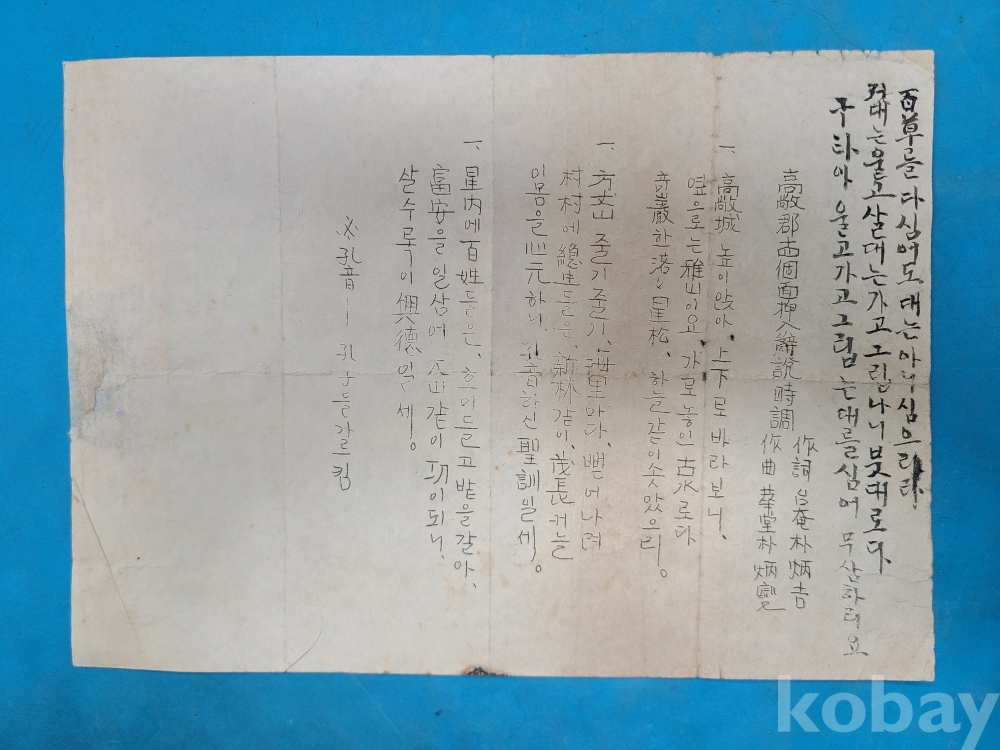 百草를 다 심어도 대는 아니 심으리라
젓대는 울고 살대는 가고 그리나니 붓대로다
구타야 울고 가고 그리는 대를 심어 무삼하리요
高敞郡 十四個面 押入辭說時調
作詞 朴炳吉
作曲 華堂 朴炳
一. 高敞城 높이 앉아, 上下로 바라보니,
옆으로는 雅山이요, 가로놓인 古水로다
音嚴한 落落星松, 하늘같이 솟았으리。
一. 方丈山 줄기줄기, 海里마다, 뻗어나려
村村에 總生들은, 新林같이, 茂長커늘
이몸을 心元하니, 孔音하신 聖訓일세。
一. 星內에 百姓들은, 호미들고 밭을갈아,
富安을 일삼어 大山같이 功이되니,
살수록이 興德일세。
※ 孔音ㅡ 孔子들갈으킴
kobay